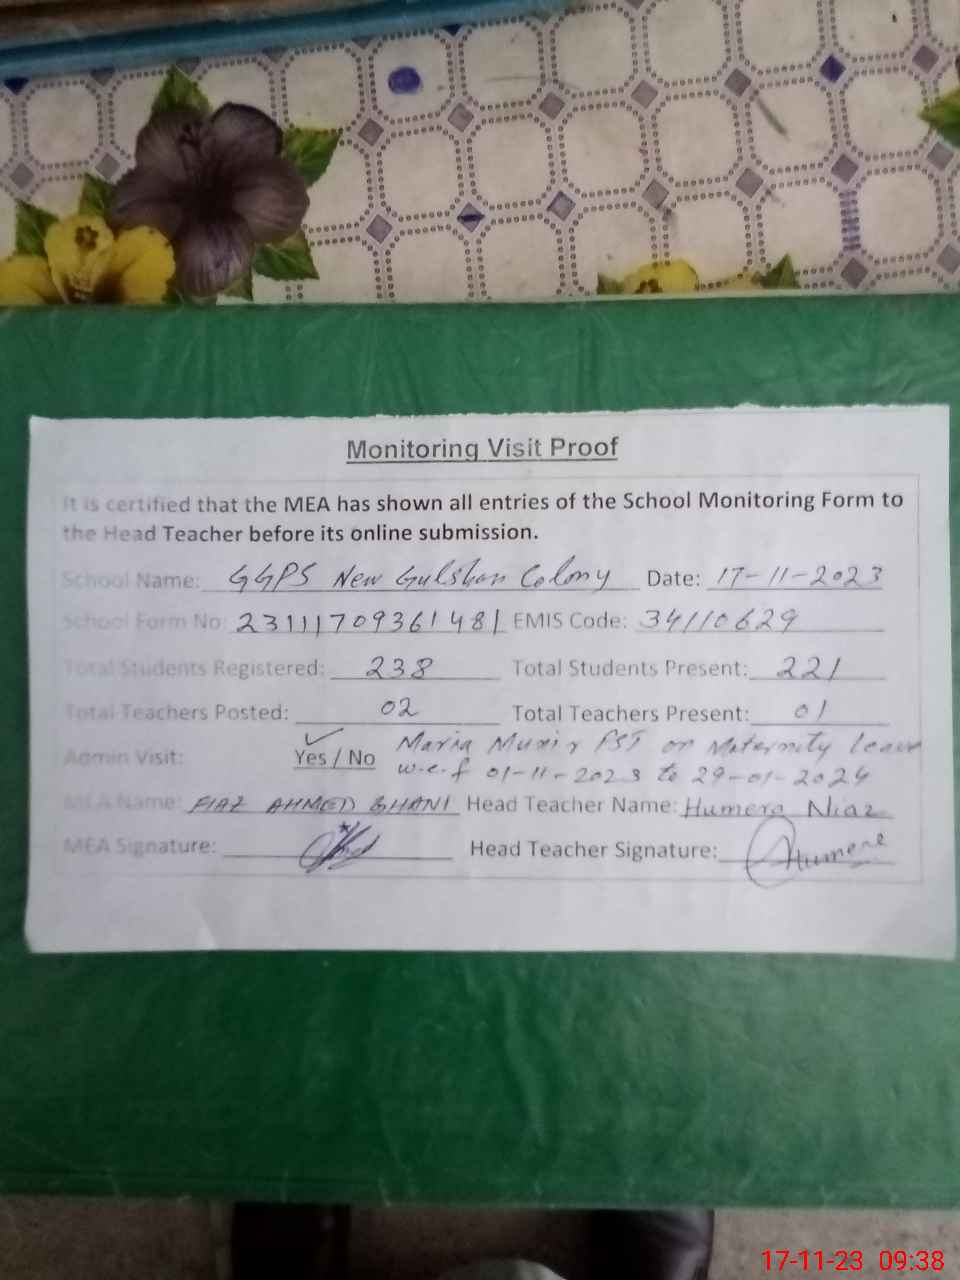 Monitoring Visit Proof
It is certified that the MEA has shown all entries of the School Monitoring Form to
the Head Teacher before its online submission.
School Name: GGPS New Gulshan Colony Date: 17-11-2023
School Form No: 23111709361481 EMIS Code: 34110629
Total Students Registered: 238 Total Students Present: 221
Total Teachers Posted: 02 Total Teachers Present: 01
Admin Visit: Yes / No Maria Munir PST on Maternity leave
w.e.f 01-11-2023 to 29-01-2024
MEA Name: FIAZ AHMED BHANI Head Teacher Name: Humera Niaz
MEA Signature: Head Teacher Signature: Humera
17-11-23 09:38